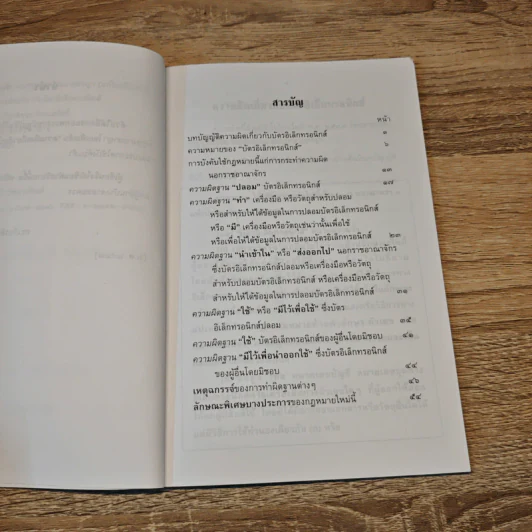 สารบัญ
หน้า
บทบัญญัติความผิดเกี่ยวกับบัตรอิเล็กทรอนิกส์ ๑
ความหมายของ "บัตรอิเล็กทรอนิกส์" ๖
การบังคับใช้กฎหมายนี้แก่การกระทำความผิด
นอกราชอาณาจักร ๑๓
ความผิดฐาน "ปลอม" บัตรอิเล็กทรอนิกส์ ๑๗
ความผิดฐาน "ทำ" เครื่องมือ หรือวัตถุสำหรับปลอม
หรือสำหรับให้ได้ข้อมูลในการปลอมบัตรอิเล็กทรอนิกส์
หรือ "มี" เครื่องมือหรือวัตถุเช่นว่านั้นเพื่อใช้
หรือเพื่อให้ได้ข้อมูลในการปลอมบัตรอิเล็กทรอนิกส์ ๒๓
ความผิดฐาน "นำเข้าใน" หรือ "ส่งออกไป" นอกราชอาณาจักร
ซึ่งบัตรอิเล็กทรอนิกส์ปลอมหรือเครื่องมือหรือวัตถุ
สำหรับปลอมบัตรอิเล็กทรอนิกส์ หรือเครื่องมือหรือวัตถุ
สำหรับให้ได้ข้อมูลในการปลอมบัตรอิเล็กทรอนิกส์ ๓๑
ความผิดฐาน "ใช้" หรือ "มีไว้เพื่อใช้" ซึ่งบัตร
อิเล็กทรอนิกส์ปลอม ๓๕
ความผิดฐาน "ใช้" บัตรอิเล็กทรอนิกส์ของผู้อื่นโดยมิชอบ ๔๑
ความผิดฐาน "มีไว้เพื่อนำออกใช้" ซึ่งบัตรอิเล็กทรอนิกส์
ของผู้อื่นโดยมิชอบ ๔๔
เหตุฉกรรจ์ของการทำผิดฐานต่างๆ ๔๖
ลักษณะพิเศษบางประการของกฎหมายใหม่นี้ ๕๔